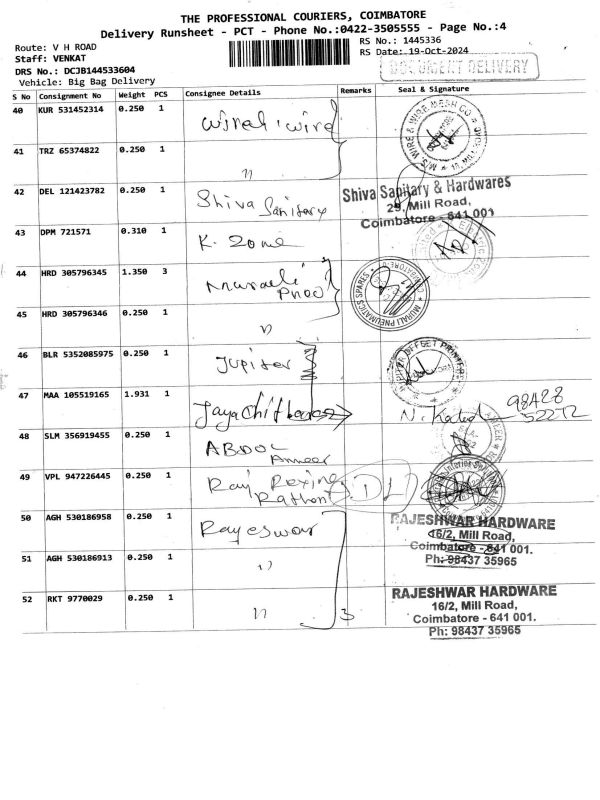 THE PROFESSIONAL COURIERS, COIMBATORE
Delivery Runsheet - PCT - Phone No.:0422-3505555 - Page No.:4
Route: V H ROAD
RS No.: 1445336
Staff: VENKAT
RS Date: 19-Oct-2024
DRS No.: DCJB144533604
DOCUMENT DELIVERY
Vehicle: Big Bag Delivery
S No Consignment No Weight PCS Consignee Details Remarks Seal & Signature
40 KUR 531452314 0.250 1 wire
41 TRZ 65374822 0.250 1 "
42 DEL 121423782 0.250 1 Shiva Sanitary
Shiva Sanitary & Hardwares
29, Mill Road,
Coimbatore - 641 001
43 DPM 721571 0.310 1 K. Zone
44 HRD 305796345 1.350 3 Murali
MURALI PNEUMATICS SPARES
45 HRD 305796346 0.250 1 "
46 BLR 5352085975 0.250 1 Jupiter
OFFSET PRINTERS
47 MAA 105519165 1.931 1 Jaya
98428
52272
48 SLM 356919455 0.250 1 ABDUL
Ameer
49 VPL 947226445 0.250 1 Raj Rexine
DL
50 AGH 530186958 0.250 1 Rajeswar
RAJESHWAR HARDWARE
16/2, Mill Road,
Coimbatore - 641 001.
Ph: 98437 35965
51 AGH 530186913 0.250 1 "
52 RKT 9770029 0.250 1 " 3
RAJESHWAR HARDWARE
16/2, Mill Road,
Coimbatore - 641 001.
Ph: 98437 35965